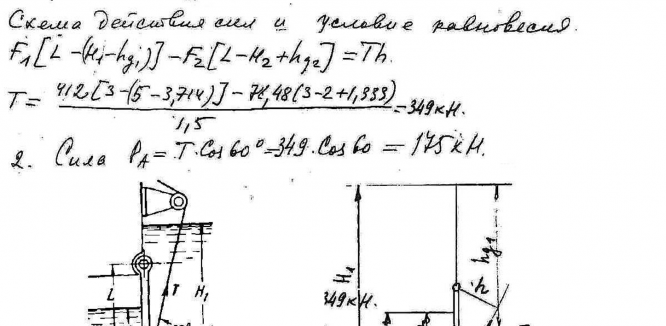 Схема действия сил и условие равновесия.
F₁[L-(H₁-hg₁)]-F₂[L-H₂+hg₂]=Th.
T= 412[3-(5-3,714)]-78,48(3-2+1,333) =349кН.
1,5
2. Сила P_A = T·Cos60°=349·Cos60 = 175кН.
L
T
H₁
H₁
hg₁
h
349кН.